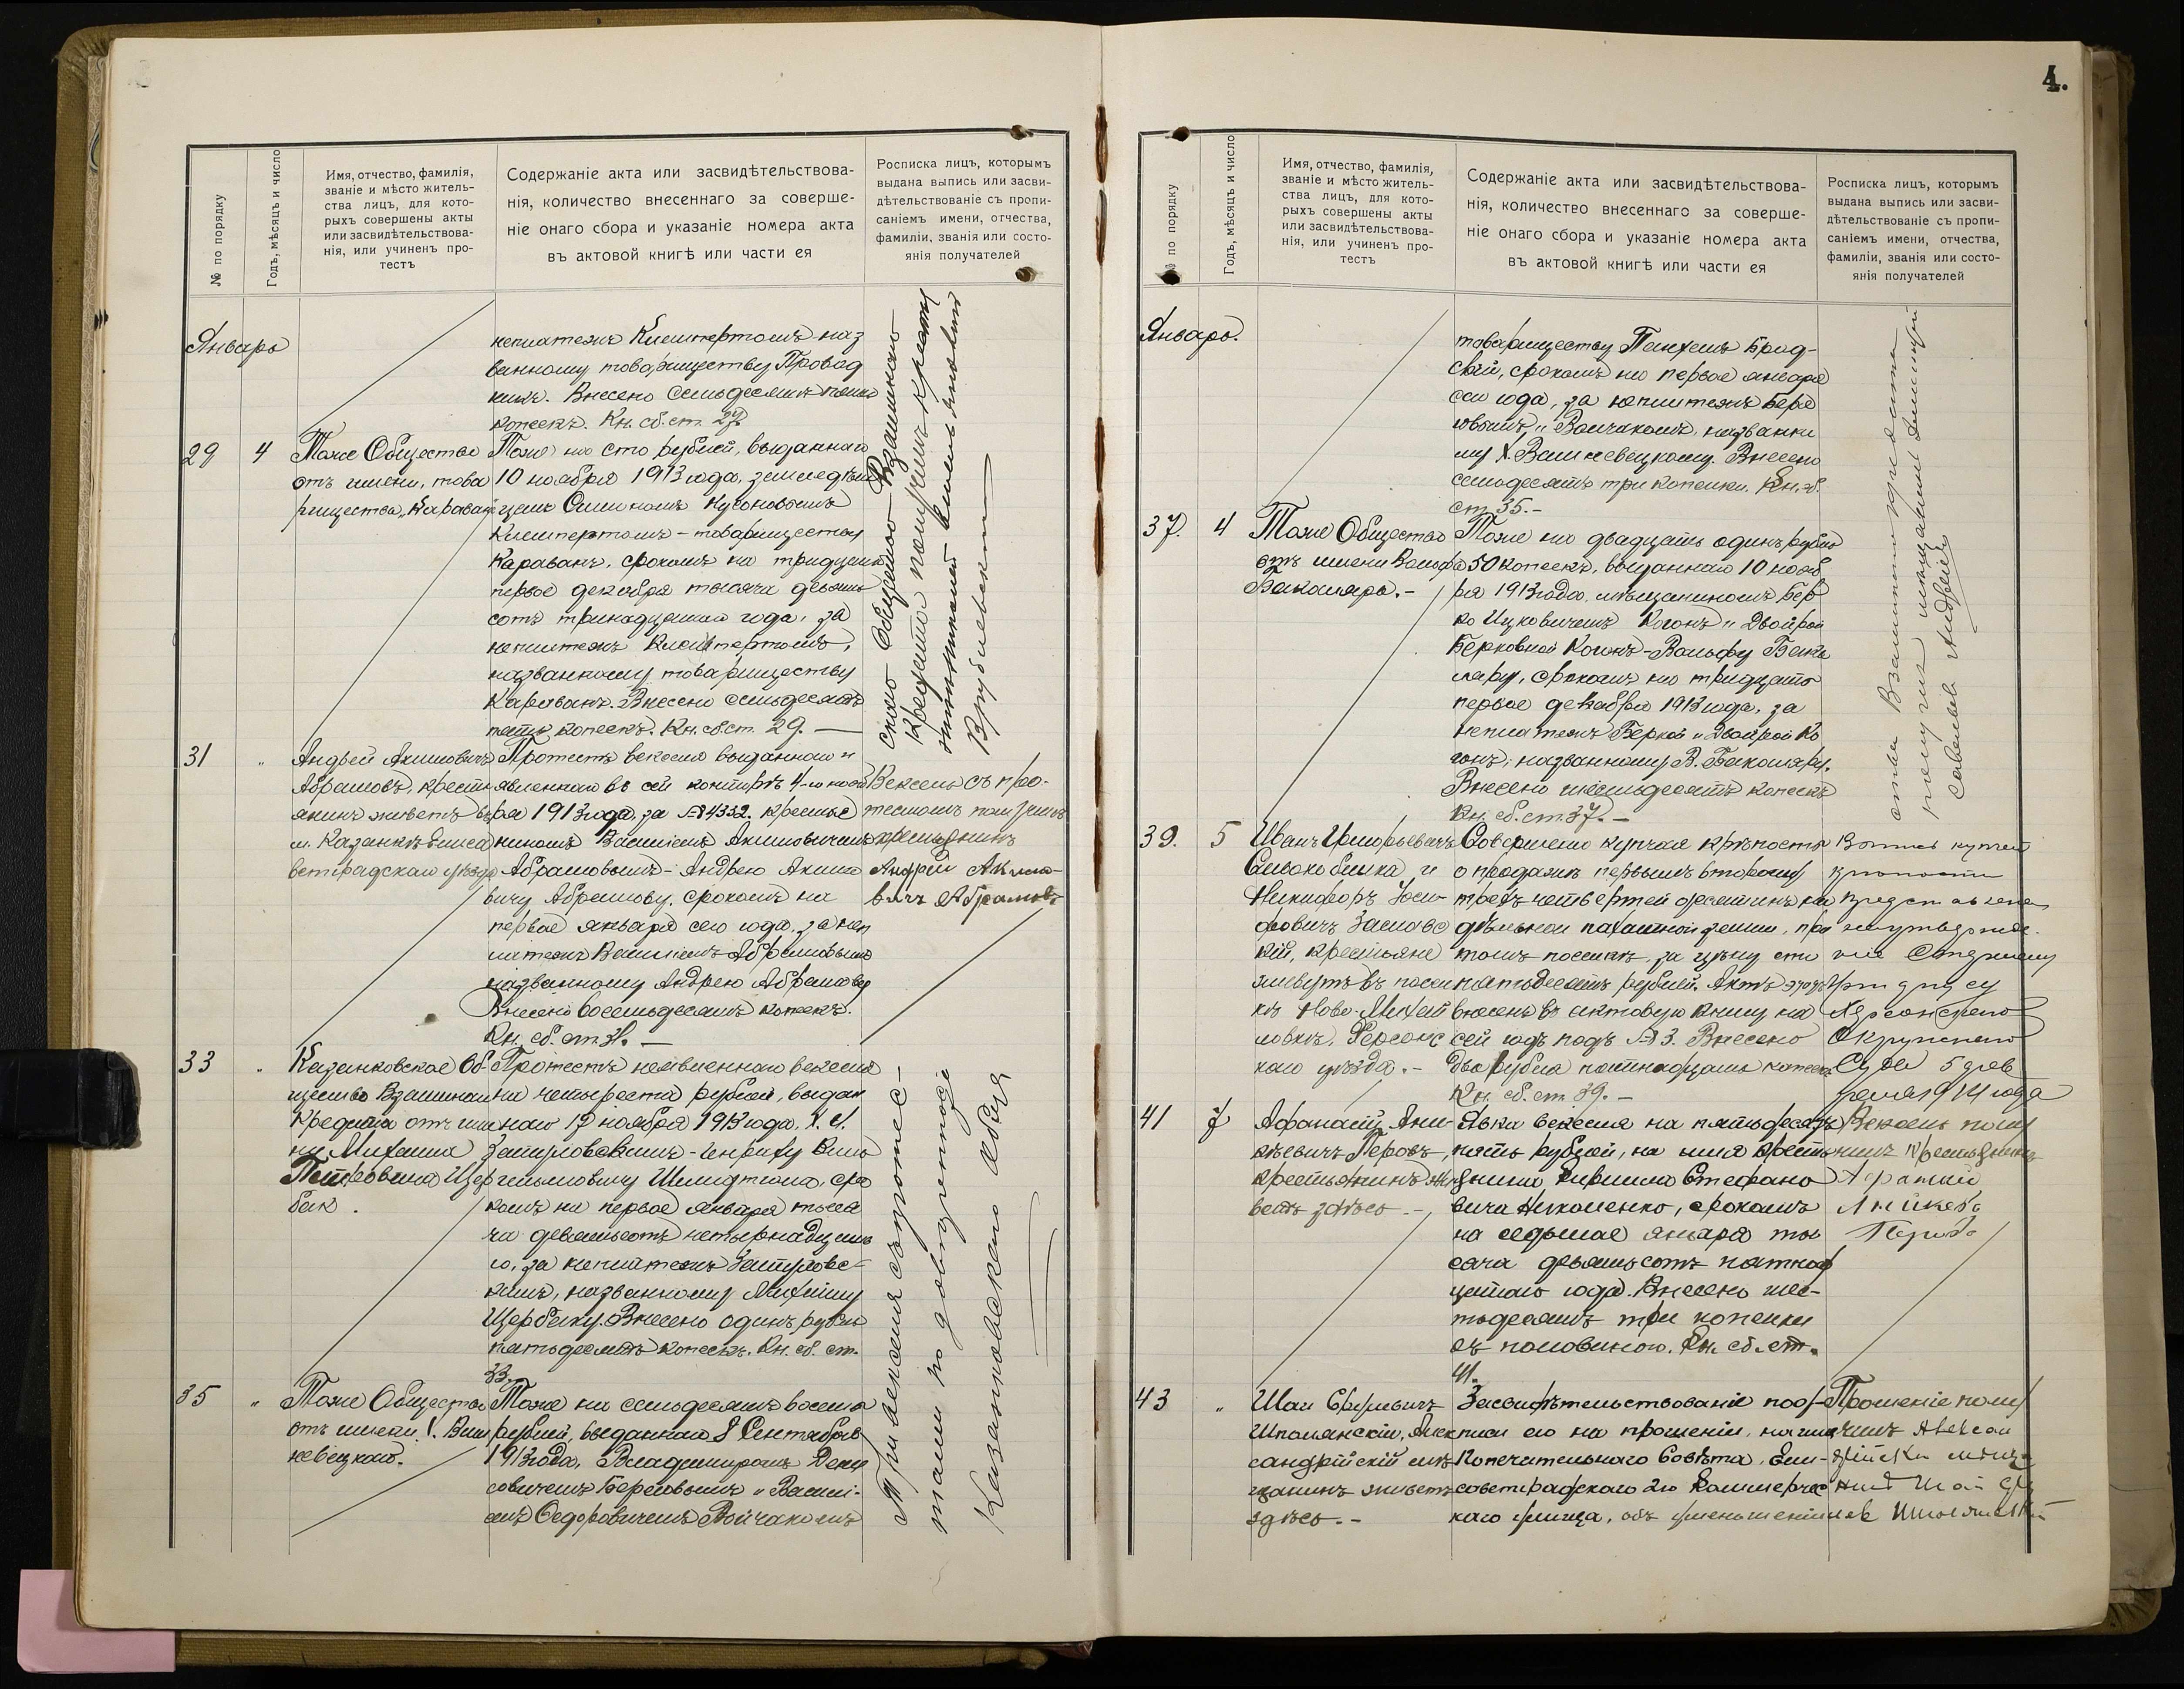 № по порядку
Годъ, мѣсяцъ и число
Имя, отчество, фамилія,
званіе и мѣсто житель-
ства лицъ, для кото-
рыхъ совершены акты
или засвидѣтельствова-
нія, или учиненъ про-
тестъ
Содержаніе акта или засвидѣтельствова-
нія, количество внесеннаго за соверше-
ніе онаго сбора и указаніе номера акта
въ актовой книгѣ или части ея
Росписка лицъ, которымъ
выдана выпись или засви-
дѣтельствованіе съ пропи-
саніемъ имени, отчества,
фамиліи, званія или состо-
янія получателей
Январь
неплатежъ Клемпертомъ наз
ванному товариществу Провод
никъ. Внесено семьдесятъ пять
копеекъ. Кн. сб. ст. 27.
29
4
Тоже Общество
отъ имени, това
рищества „Караванъ
Тоже на сто рублей, выданнаго
10 ноября 1913 года, земледѣль
цемъ
Клемпертомъ - товариществу
Караванъ, срокомъ на тридцать
первое декабря тысяча девять
сотъ тринадцатаго года, за
неплатежъ Клемпертомъ,
названному товариществу
Караванъ. Внесено семьдесятъ
пять копеекъ. Кн. сб. ст. 29. —
31
"
Андрей Акимовичъ
Абрамовъ, кресть
янинъ живетъ въ
м. Казанкѣ Елиса
ветградскаго уѣзда
Протестъ векселя выданнаго и
явленнаго въ сей конторѣ 4-го нояб
ря 1913 года, за № 4332. крестья
ниномъ Василіемъ Акимовичемъ
Абрамовымъ - Андрею Акимо
вичу Абрамову, срокомъ на
первое января сего года, за неп
латежъ Василіемъ Абрамовымъ
названному Андрею Абрамову
Внесено восемьдесятъ копеекъ.
Кн. сб. ст. 31. —
Вексель съ про-
тестомъ получилъ
крестьянинъ
Андрей Акимо-
вичъ Абрамовъ
33
"
Казанковское Об-
щество Взаимнаго
Кредита отъ име
ни Михаила
Петровича Щер
бак.
Протестъ неявленнаго векселя
на четыреста рублей, выдан
наго 17 ноября 1913 года, Х. І.
Запуловскимъ - Генриху Виль
гельмовичу Шмидтома, сро
комъ на первое января тыся
ча девятьсотъ четырнадцата
го, за неплатежъ Запуловс-
кимъ, названному Михаилу
Щербаку. Внесено одинъ рубль
пятьдесятъ копеекъ. Кн. сб. ст.
33.
35
"
Тоже Общество
отъ имени І. Виш
невецкаго.
Тоже на семьдесятъ восемь
рублей, выданнаго 8 Сентября
1913 года, Владиміромъ Дени
совичемъ Березовымъ и Васили-
емъ Федоровичемъ Войчакомъ
Три векселя съ протес-
тами по довѣренности
Казанковскаго Обще
скаго Общества Взаимнаго
Кредита получилъ крестья
4.
№ по порядку
Годъ, мѣсяцъ и число
Имя, отчество, фамилія,
званіе и мѣсто житель-
ства лицъ, для кото-
рыхъ совершены акты
или засвидѣтельствова-
нія, или учиненъ про-
тестъ
Содержаніе акта или засвидѣтельствова-
нія, количество внесеннаго за соверше-
ніе онаго сбора и указаніе номера акта
въ актовой книгѣ или части ея
Росписка лицъ, которымъ
выдана выпись или засви-
дѣтельствованіе съ пропи-
саніемъ имени, отчества,
фамиліи, званія или состо-
янія получателей
Январь.
товариществу Брод-
скій, срокомъ на первое января
сего года, за неплатежъ Берез
овымъ и Войчакомъ, названно
му І. Вишневецкому. Внесено
семьдесятъ три копейки. Кн. сб.
ст. 35. —
37.
4
Тоже Общество
отъ имени Вольфа
Бакаляра. —
Тоже на двадцать одинъ рубль
50 копеекъ, выданнаго 10 нояб
ря 1913 года, мѣщаниномъ Бер
ко Ицковичемъ Коганъ и Двойрой
Берковной Коганъ - Вольфу Бака
ляру, срокомъ на тридцать
первое декабря 1913 года, за
неплатежъ Беркой и Двойрой Ко
ганъ, названному В. Бакаляру.
Внесено шестьдесятъ копеекъ
Кн. сб. ст. 37. —
ства Взаимнаго Кредита
получилъ мѣщанинъ
39.
5
Иванъ Григорьевичъ
Никифоръ Іоси
фовичъ Заславс
кій, крестьяне
живутъ въ посел
къ Ново-Михай
ловкѣ, Херсонс
каго уѣзда. —
Совершено купчая крѣпость
о продажѣ первымъ второму
трехъ четвертей десятинъ на
дѣльной пахатной земли, при
томъ поселкѣ, за цѣну сто
пятьдесятъ рублей. Актъ этотъ
внесенъ въ актовую книгу на
сей годъ подъ № 3. Внесено
два рубля пятнадцать копеекъ
Кн. сб. ст. 39. —
Выпись купчей
крѣпости
представлена
на утвержде-
ніе Старшему
Нотаріусу
Херсонскаго
Окружнаго
Суда 5 фев
раля 1914 года
41
7
Афанасій Ани-
кѣевичъ Перовъ,
крестьянинъ жи
ветъ здѣсь. —
Явка векселя на пятьдесятъ
пять рублей, на имя кресть
янина Кирилла Стефано
вича Николенко, срокомъ
на седьмое января ты
сяча девятьсотъ пятнад
цатаго года. Внесено шес-
тьдесятъ три копейки
съ половиною. Кн. сб. ст.
41.
Вексель полу
чилъ крестьянинъ
Афанасій
Аникеев
Перовъ
43
"
Шая Сруловичъ
Шполянскій, Алек
сандрійскій мѣ
щанинъ живетъ
здѣсь. —
Засвидѣтельствованіе под-
писи его на прошеніи, на имя
Попечительнаго Совѣта, Ели-
саветградскаго 2го Коммерчес
каго училища, объ уменьшеніи
Прошеніе полу
чилъ Алексан
дрійскій мѣща
нинъ Шая Сру
лев Шполянскій